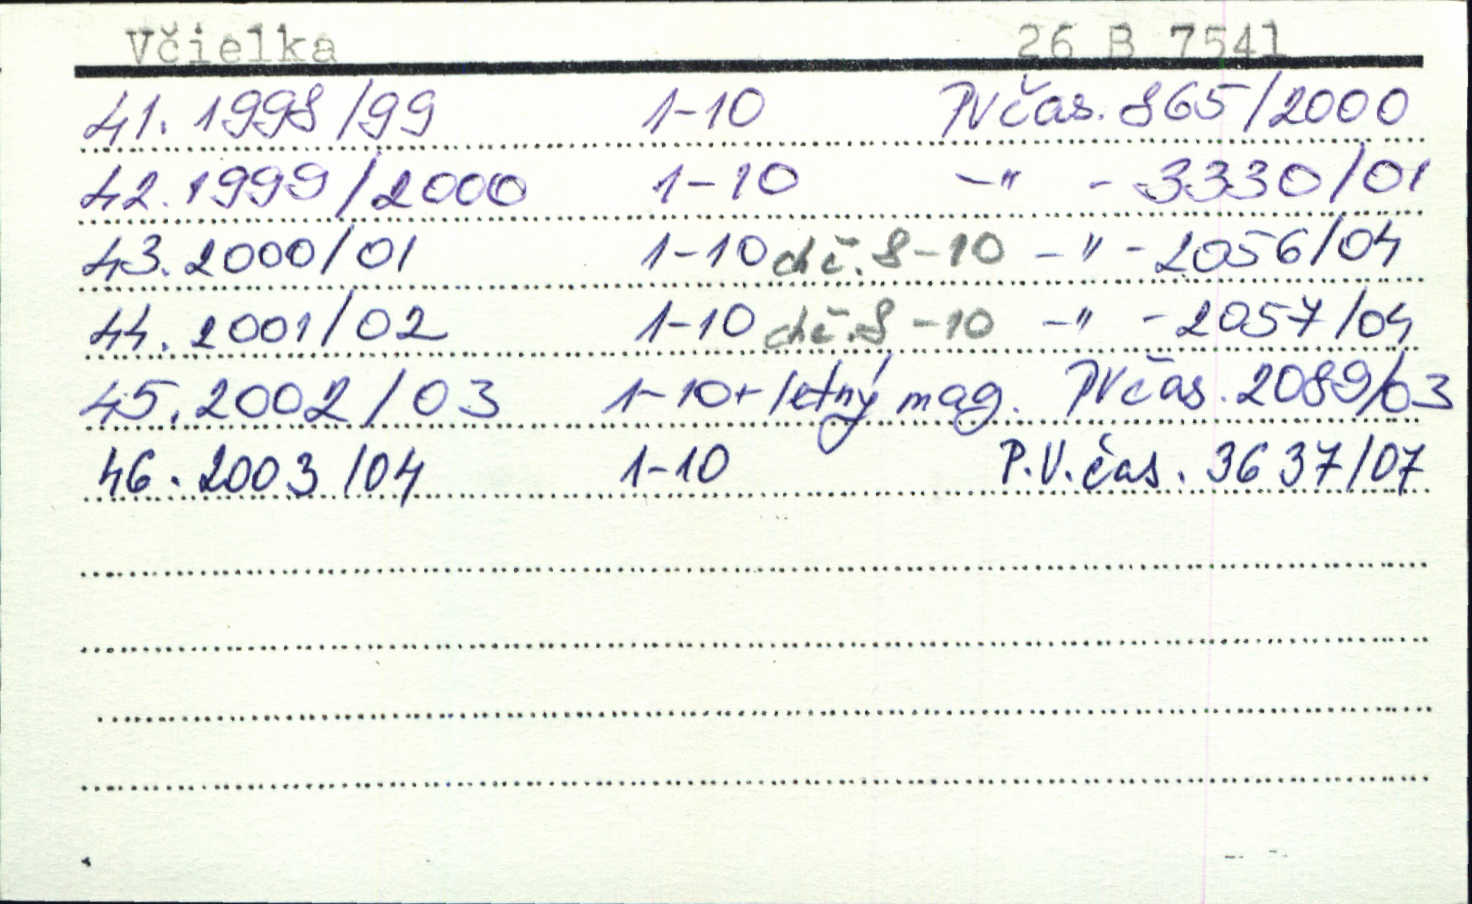 Včielka 26 B 7541
41. 1998/99 1-10 PV čas. 865/2000
42. 1999/2000 1-10 -"- 3330/01
43. 2000/01 1-10 ch č. 8-10 -"- 2056/04
44. 2001/02 1-10 ch č. 8-10 -"- 2057/04
45. 2002/03 1-10 + letný mag. PV čas. 2089/03
46. 2003/04 1-10 P.V. čas. 3637/07